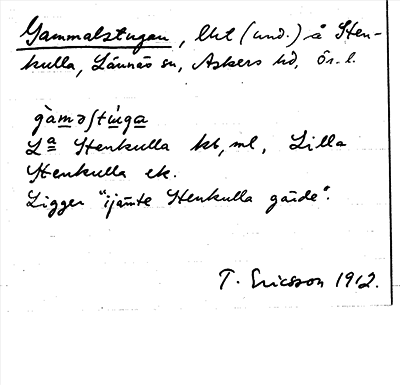 Gammalstugan, lht (und.) å Sten-
kulla, Lännäs sn, Askers hd, Ör. l.
gàmǝʃtúga
La Stenkulla kb, ml, Lilla
Stenkulla ek.
Ligger "ijämte Stenkulla gårde".
T. Ericsson 1912.